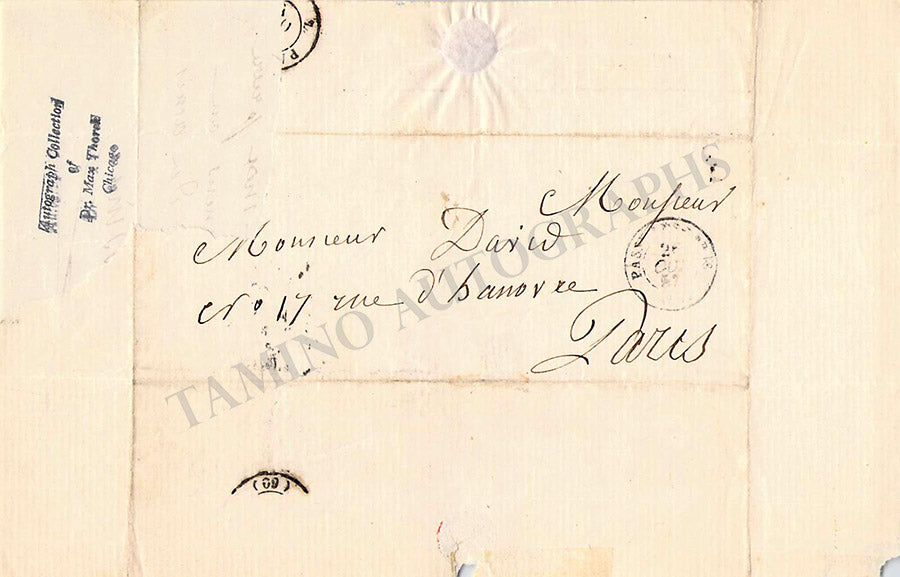 Autograph Collection
of
Dr. Max Thorek
Chicago
Monsieur
Monsieur David
No 17 rue d'hanovre
Paris
(60)
TAMINO AUTOGRAPHS